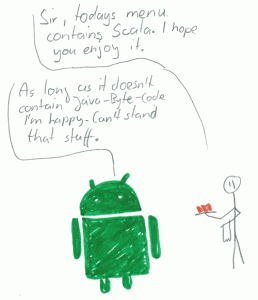 Sir, todays menu
contains Scala. I hope
you enjoy it.
As long as it doesn't
contain Java-Byte-Code
I'm happy. Can't stand
that stuff.